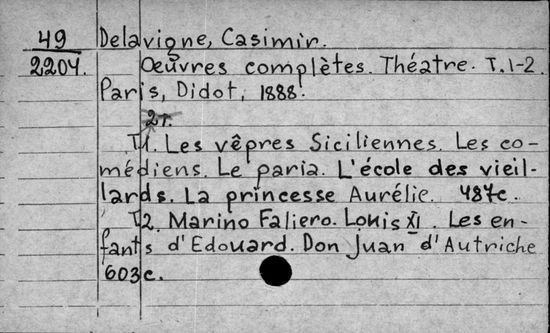 49 Delavigne, Casimir.
2204. Œuvres complètes. Théatre. T. 1-2.
Paris, Didot, 1888.
2т.
T1. Les vêpres Siciliennes. Les co-
médiens. Le paria. L'école des vieil-
lards. La princesse Aurélie. 487c.
T2. Marino Faliero. Louis XI. Les en-
fants d'Edouard. Don Juan d'Autriche
603c.